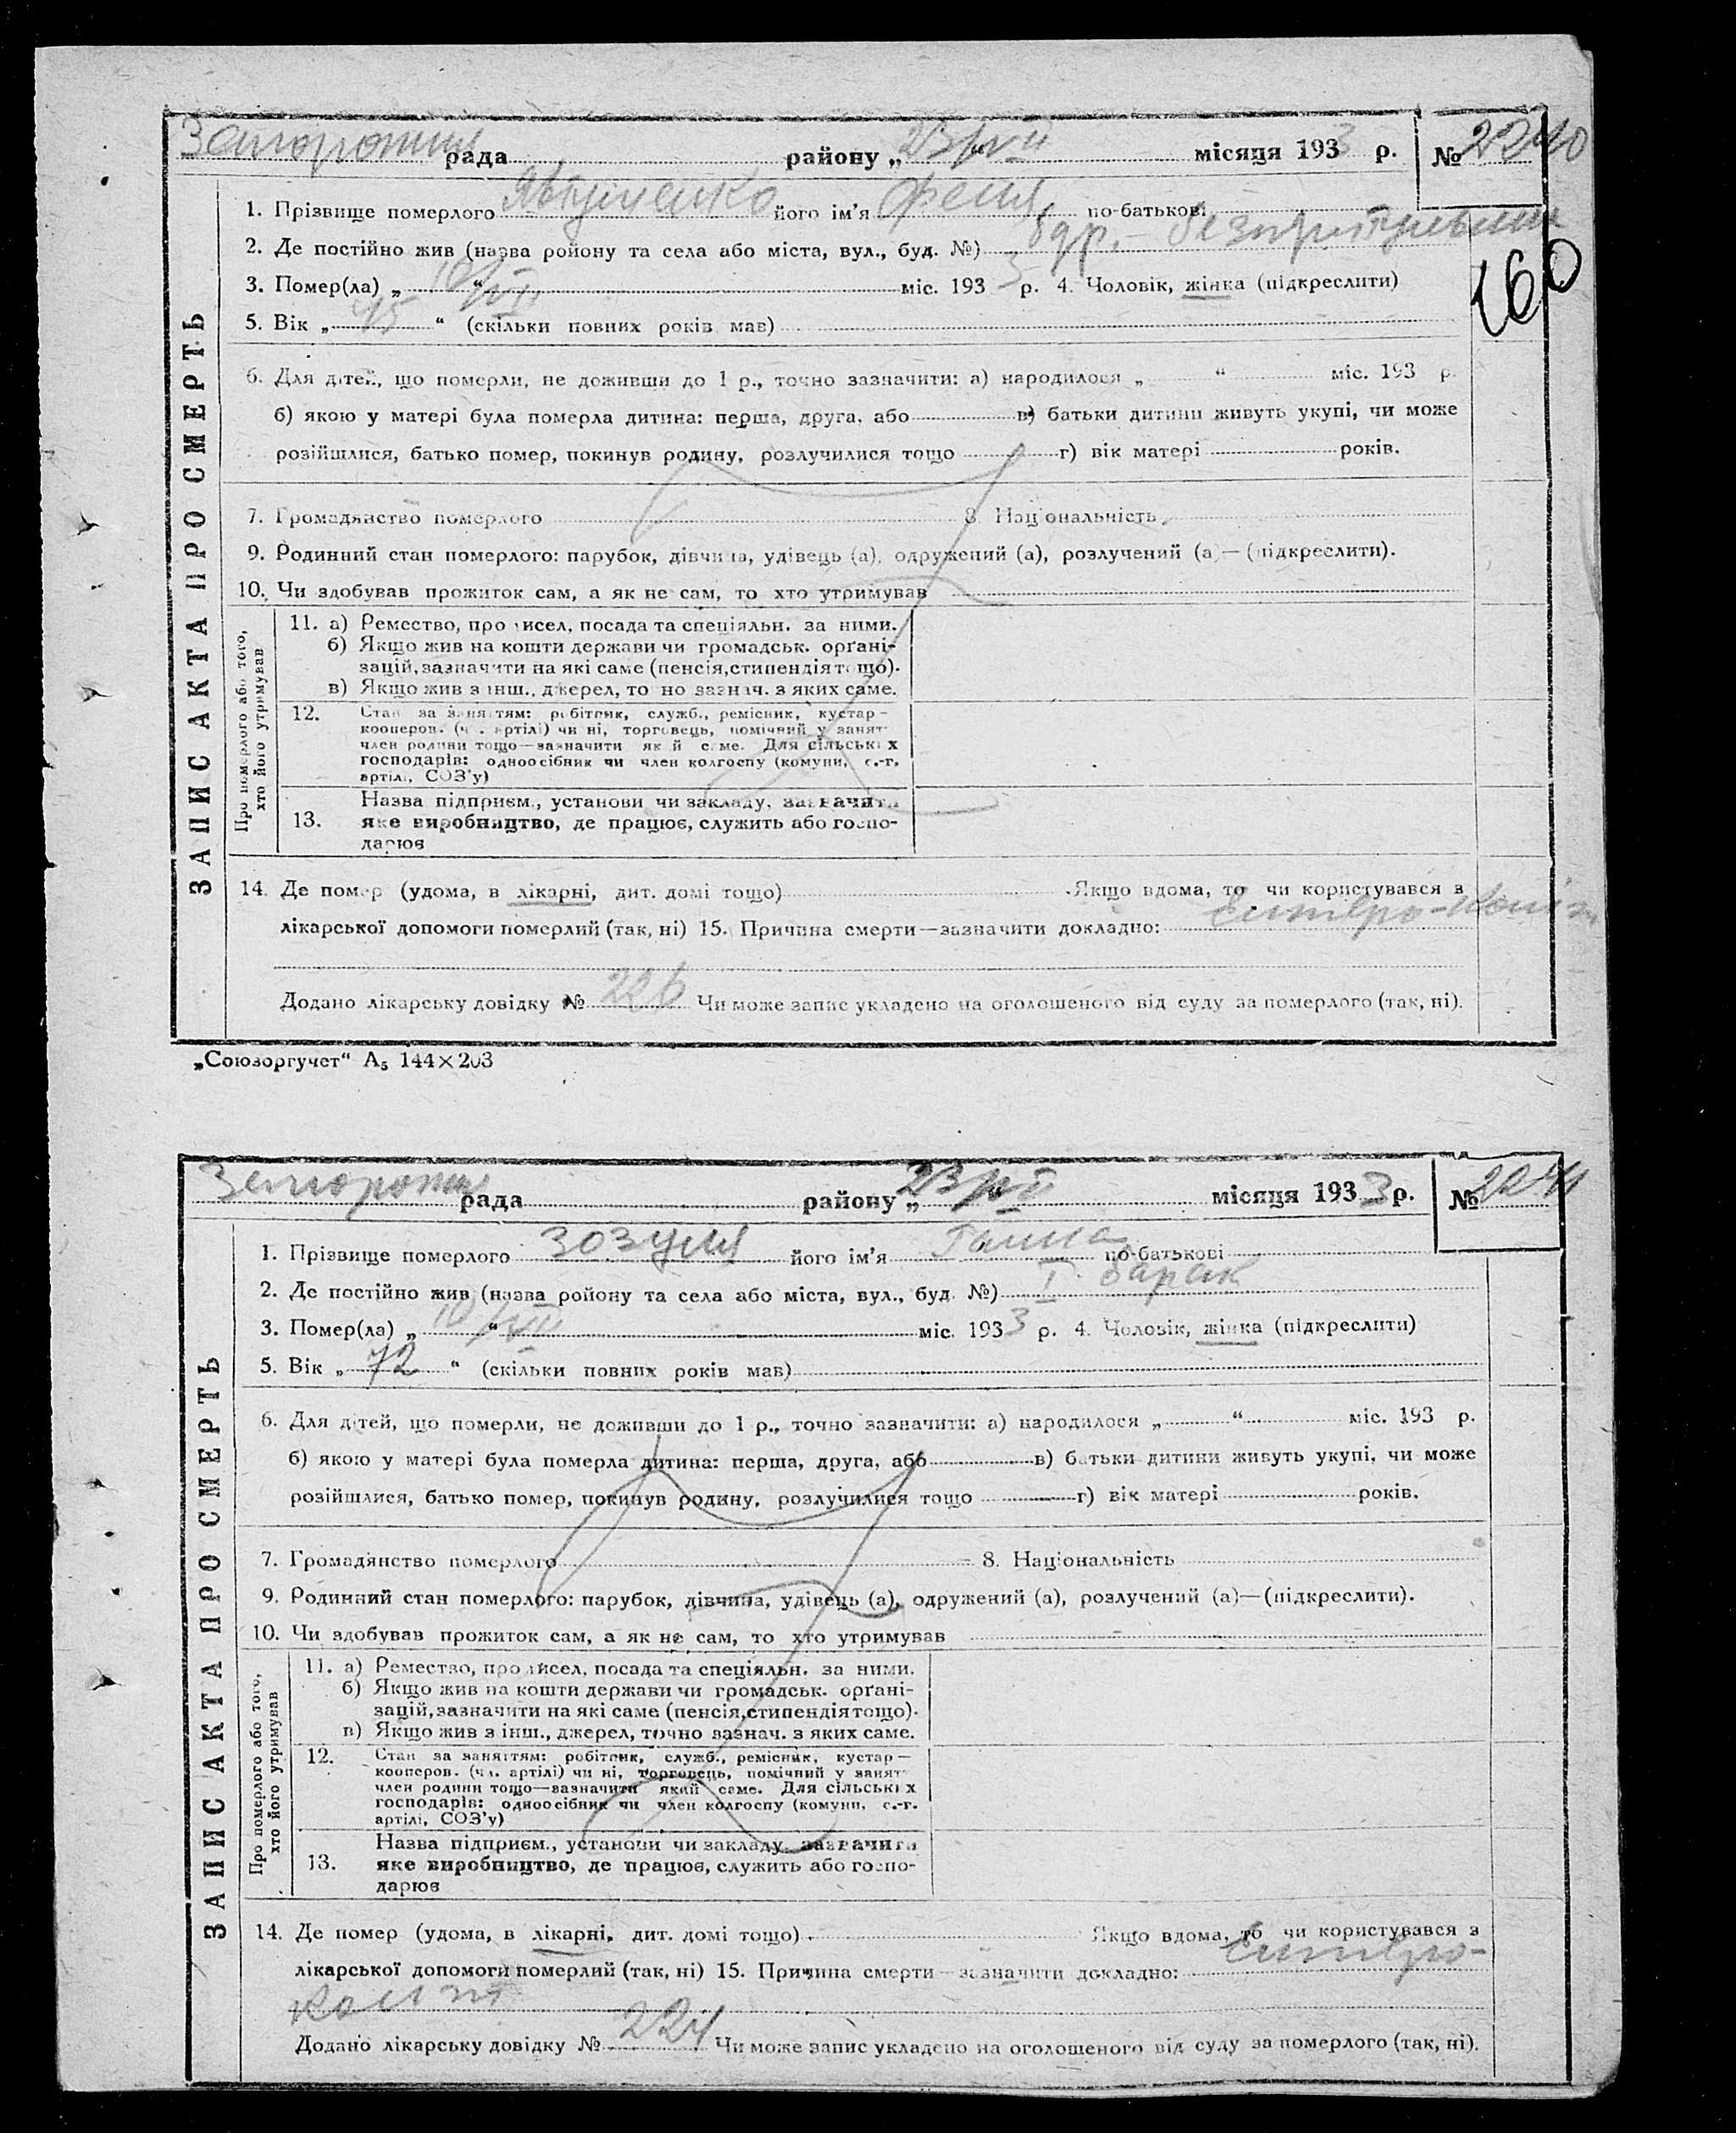 Запоріжжя рада района „ 23/VII “ місяця 1933 р. № 2240
160
1. Прізвище померлого його ім'я Феня по-батькові
2. Де постійно жив (назва району та села або міста, вул., буд. №)
3. Помер(ла) „ 10/VII “ міс. 1933 р. 4. Чоловік, жінка (підкреслити)
5. Вік „ 45 “ (скільки повних років мав)
6. Для дітей, що померли, не доживши до 1 р., точно зазначити: а) народилося „ “ міс. 193 р.
б) якою у матері була померла дитина: перша, друга, або в) батьки дитини живуть укупі, чи може
розійшлися, батько помер, покинув родину, розлучилися тощо г) вік матері років.
7. Громадянство померлого 8. Національність
9. Родинний стан померлого: парубок, дівчина, удівець (а), одружений (а), розлучений (а)—(підкреслити).
10. Чи здобував прожиток сам, а як не сам, то хто утримував
Про померлого або того, хто його утримував
11. а) Ремество, промисел, посада та спеціяльн. за ними.
б) Якщо жив на кошти держави чи громадськ. орґані-
зацій, зазначити на які саме (пенсія, стипендія тощо).
в) Якщо жив з інш., джерел, точно зазнач. з яких саме.
12. Стан за заняттям: робітник, служб., ремісник, кустар—
кооперов. (чл. артілі) чи ні, торговець, помічний у занят
член родини тощо—зазначити який саме. Для сільських
господарів: одноосібник чи член колгоспу (комуни, с.-г.
артілі, СОЗ'у)
13. Назва підприєм., установи чи закладу, зазначити
яке виробництво, де працює, служить або госпо-
дарює
14. Де помер (удома, в лікарні, дит. домі тощо) Якщо вдома, то чи користувався з
лікарської допомоги померлий (так, ні) 15. Причина смерти—зазначити докладно: Ентеро-коліт
Додано лікарську довідку № 226 Чи може запис укладено на оголошеного від суду за померлого (так, ні).
ЗАПИС АКТА ПРО СМЕРТЬ
„Союзоргучет“ А₅ 144×203
Запоріжжя рада району „ 23/VII “ місяця 1933 р. № 2241
1. Прізвище померлого Зозуля його ім'я Ганна по-батькові
2. Де постійно жив (назва району та села або міста, вул., буд. №) I барак
3. Помер(ла) „ 10/VII “ міс. 1933 р. 4. Чоловік, жінка (підкреслити)
5. Вік „ 72 “ (скільки повних років мав)
6. Для дітей, що померли, не доживши до 1 р., точно зазначити: а) народилося „ “ міс. 193 р.
б) якою у матері була померла дитина: перша, друга, або в) батьки дитини живуть укупі, чи може
розійшлися, батько помер, покинув родину, розлучилися тощо г) вік матері років.
7. Громадянство померлого 8. Національність
9. Родинний стан померлого: парубок, дівчина, удівець (а), одружений (а), розлучений (а)—(підкреслити).
10. Чи здобував прожиток сам, а як не сам, то хто утримував
Про померлого або того, хто його утримував
11. а) Ремество, промисел, посада та спеціяльн. за ними.
б) Якщо жив на кошти держави чи громадськ. орґані-
зацій, зазначити на які саме (пенсія, стипендія тощо).
в) Якщо жив з інш., джерел, точно зазнач. з яких саме.
12. Стан за заняттям: робітник, служб., ремісник, кустар—
кооперов. (чл. артілі) чи ні, торговець, помічний у занят
член родини тощо—зазначити який саме. Для сільських
господарів: одноосібник чи член колгоспу (комуни, с.-г.
артілі, СОЗ'у)
13. Назва підприєм., установи чи закладу, зазначити
яке виробництво, де працює, служить або госпо-
дарює
14. Де помер (удома, в лікарні, дит. домі тощо) Якщо вдома, то чи користувався з
лікарської допомоги померлий (так, ні) 15. Причина смерти—зазначити докладно: Ентеро-
коліт
Додано лікарську довідку № 224 Чи може запис укладено на оголошеного від суду за померлого (так, ні).
ЗАПИС АКТА ПРО СМЕРТЬ